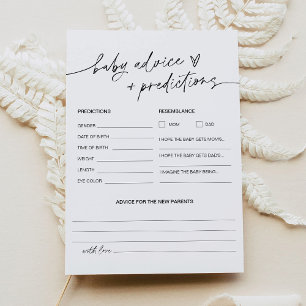 baby advice ♡
+ predictions
PREDICTIONS RESEMBLANCE
GENDER MOM DAD
DATE OF BIRTH I HOPE THE BABY GETS MOM'S...
TIME OF BIRTH
WEIGHT I HOPE THE BABY GETS DAD'S...
LENGTH I IMAGINE THE BABY BEING...
EYE COLOR
ADVICE FOR THE NEW PARENTS
with love